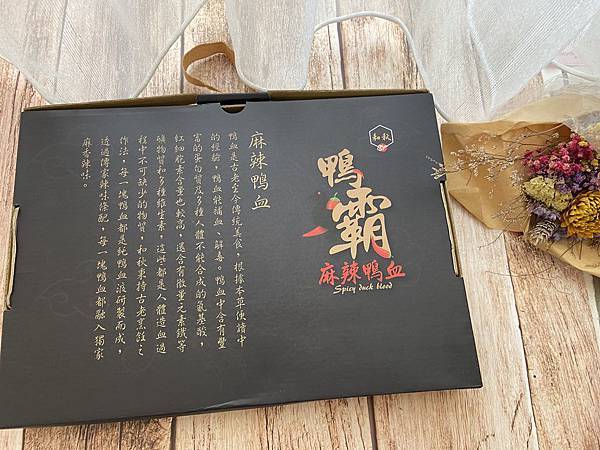 和秋
鴨霸
麻辣鴨血
Spicy duck blood
麻辣鴨血
鴨血是古老至今傳統美食,根據本草便讀中
的經驗,鴨血能補血、解毒。鴨血中含有豐
富的蛋白質及多種人體不能合成的氨基酸,
紅細胞素含量也較高,還含有微量元素鐵等
礦物質和多種維生素,這些都是人體造血過
程中不可缺少的物質,和秋秉持古老烹飪之
作法,每一塊鴨血都是純鴨血液研製而成,
透過傳家辣味條配,每一塊鴨血都融入獨家
麻香辣味。